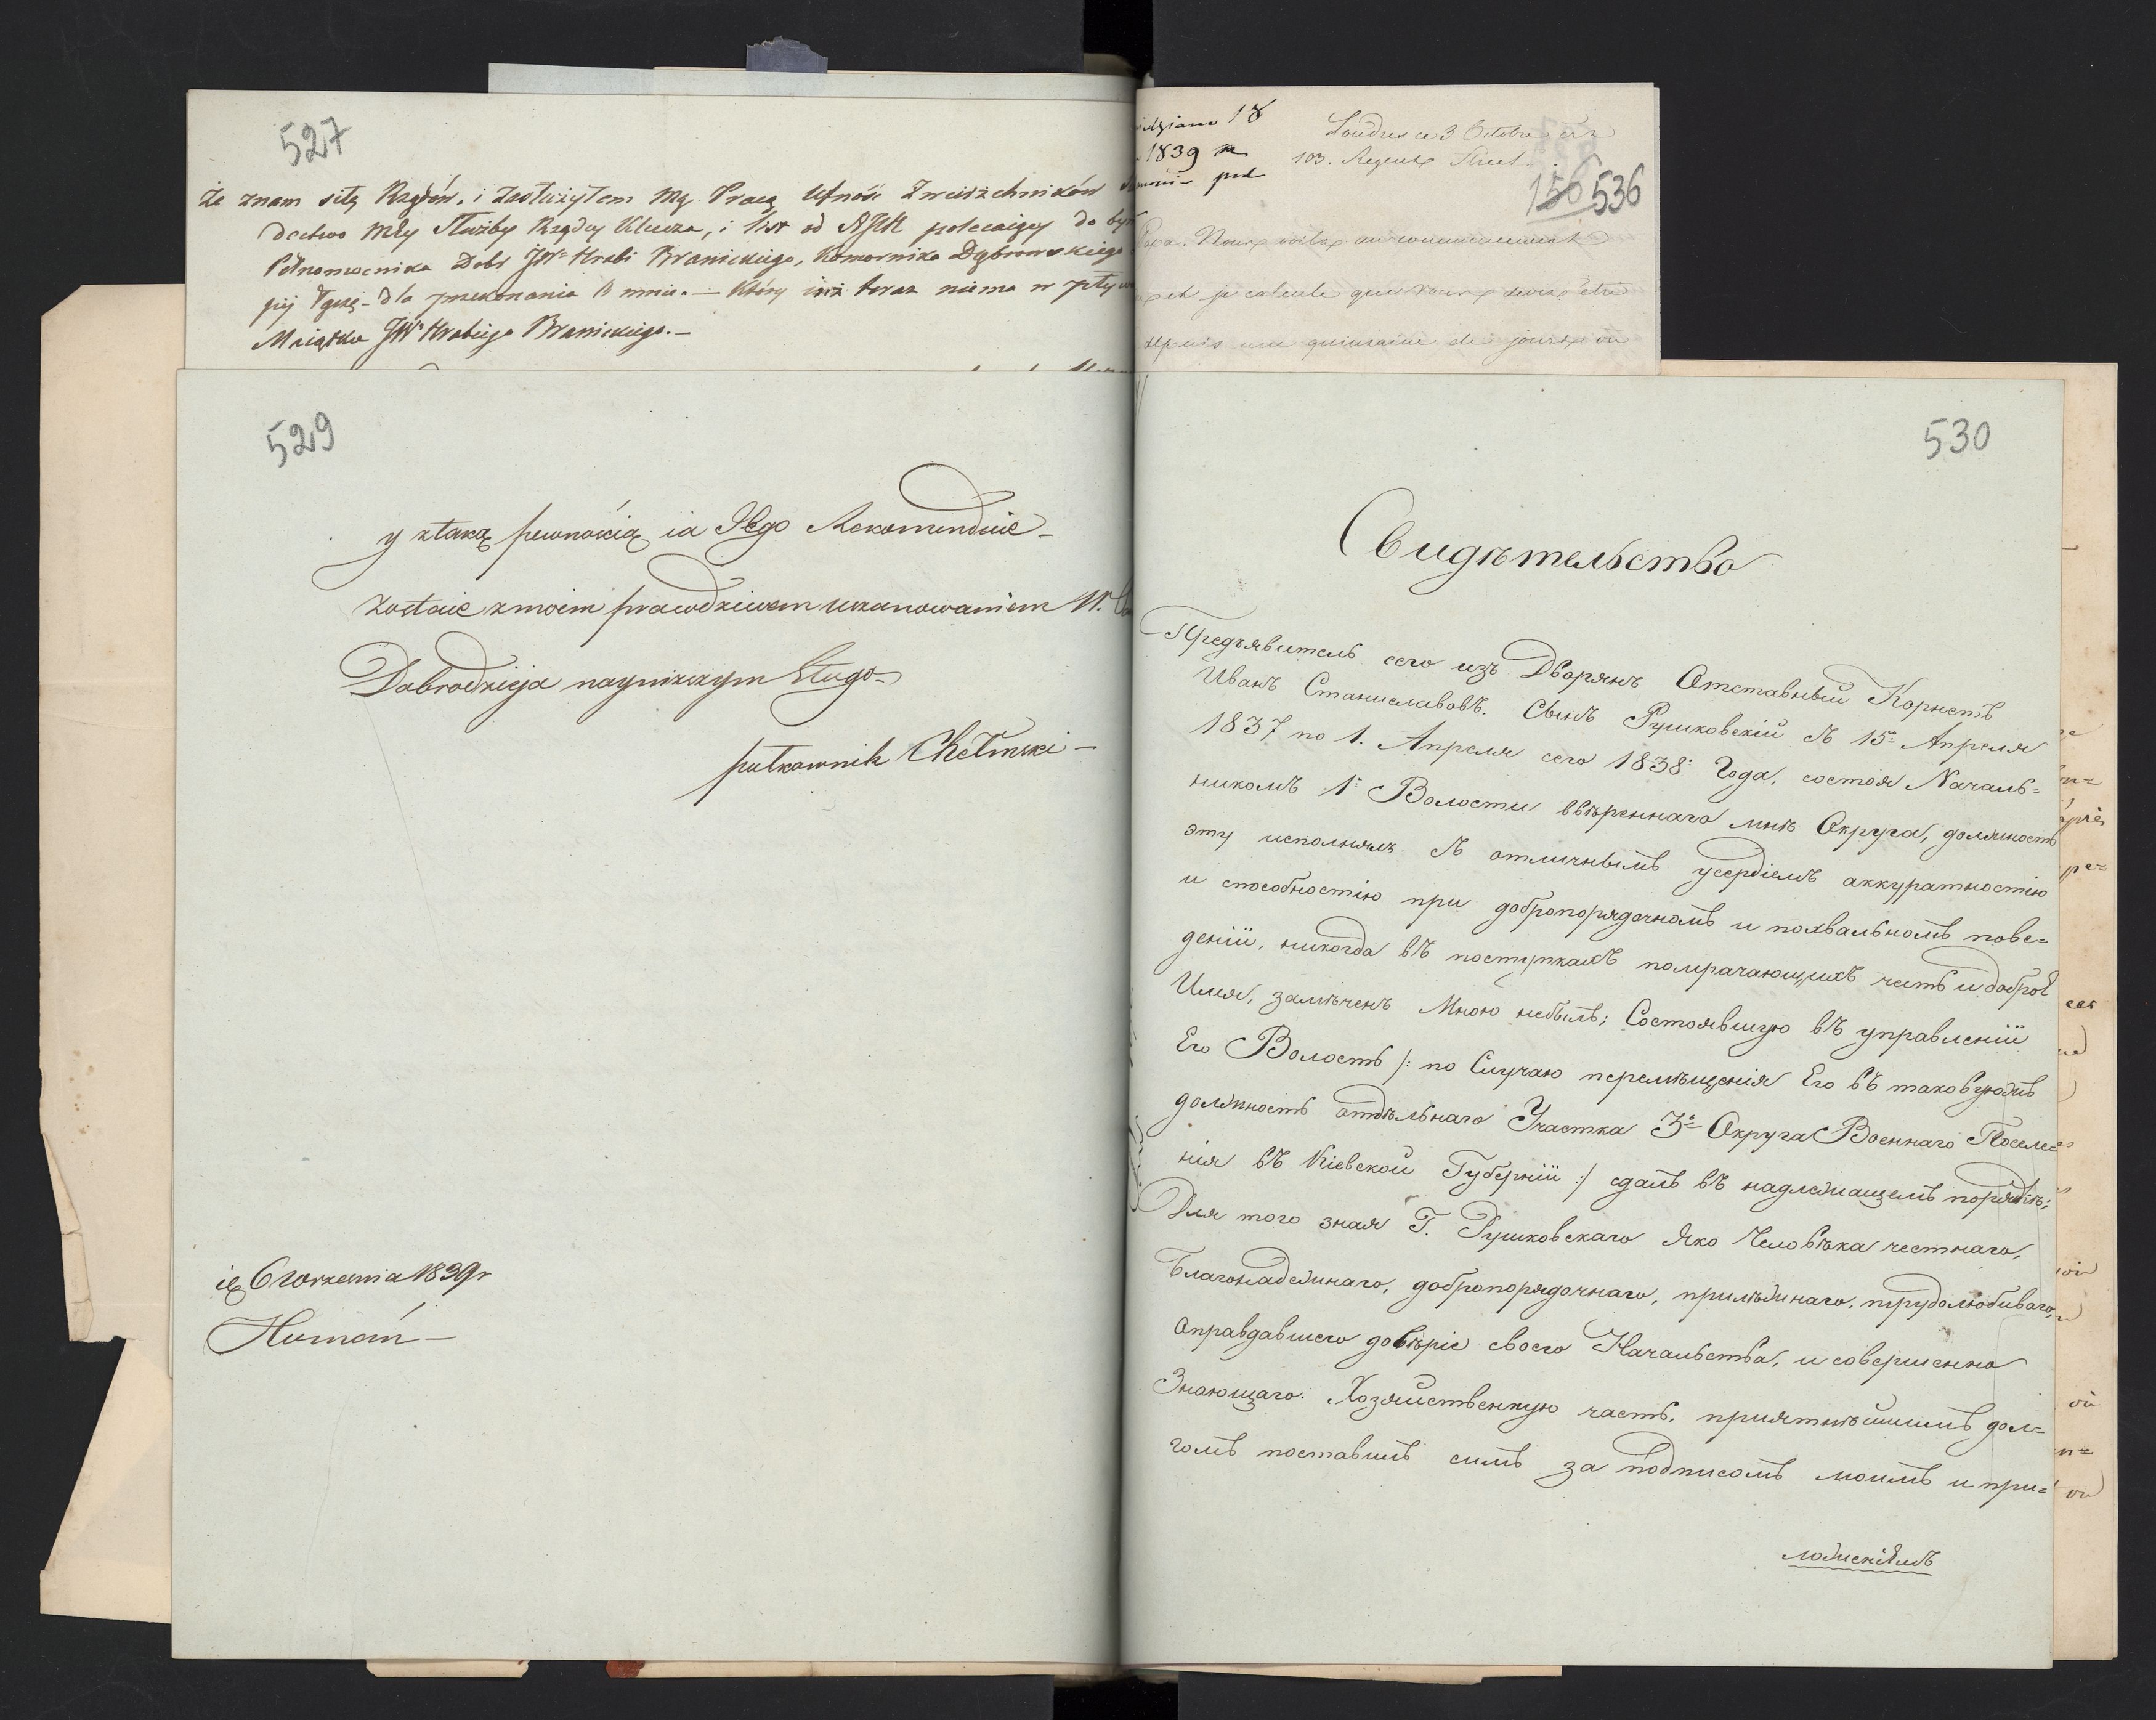 527
że znam siłę Rządów, i zasłużyłem mą Pracą Ufność Zwierzchników
dectwo mey Służby Rządcy Klucza, i list od polecaiący do
Pełnomocnika Dóbr JWº Hrabi Branickiego, Komornika Dąbrowskiego
łączę - dla przekonania O mnie. — Który iuż teraz niema w
Maiątku JWº Hrabiego Branickiego. —
18
1839
Londres ce 3 Octobre
103. Regents Street
156 536
Papa. Nous voila au commencement
et je calcule que vous devez être
depuis une quinzaine de jours
529
y ztaką pewnością ia Jego Rekomenduie —
zostaie zmoim prawdziwem uszanowaniem W.
Dobrodzieja naynizszym Sługo —
pułkownik Chełmski —
6 Wrzesnia 1839 r
Humań —
530
Свидѣтельство
Предъявитель сего изъ Дворянъ Отставный Корнетъ
Иванъ Станиславовъ. Сынъ Рушковскій съ 15º Апреля
1837 по 1. Апреля сего 1838: Года, состоя Началь=
никомъ 1й Волости ввѣреннаго мнѣ Округа, должность
эту исполнялъ съ отличнымъ усердіемъ аккуратностію
и способностію при добропорядочномъ и похвальномъ пове=
деніи, никогда въ поступкахъ помрачающихъ честь и доброе
Имя, замѣченъ Мною небылъ; Состоявшую въ управленіи
Его Волость /: по Случаю перемѣщенія Его въ таковуюжъ
должность отдѣльнаго Участка 3º Округа Военнаго Поселе=
нія въ Кіевской Губерніи :/ сдалъ въ надлежащемъ порядкѣ;
Для того зная Г. Рушковскаго Яко Человѣка честнаго,
Благонадежнаго, добропорядочнаго, прилѣжнаго, трудолюбиваго,
Оправдавшего довѣріе своего Начальства, и совершенно
Знающаго. Хозяйственную часть, приятнѣйшимъ дол=
гомъ поставилъ симъ за подписомъ моимъ и при=
ложеніемъ